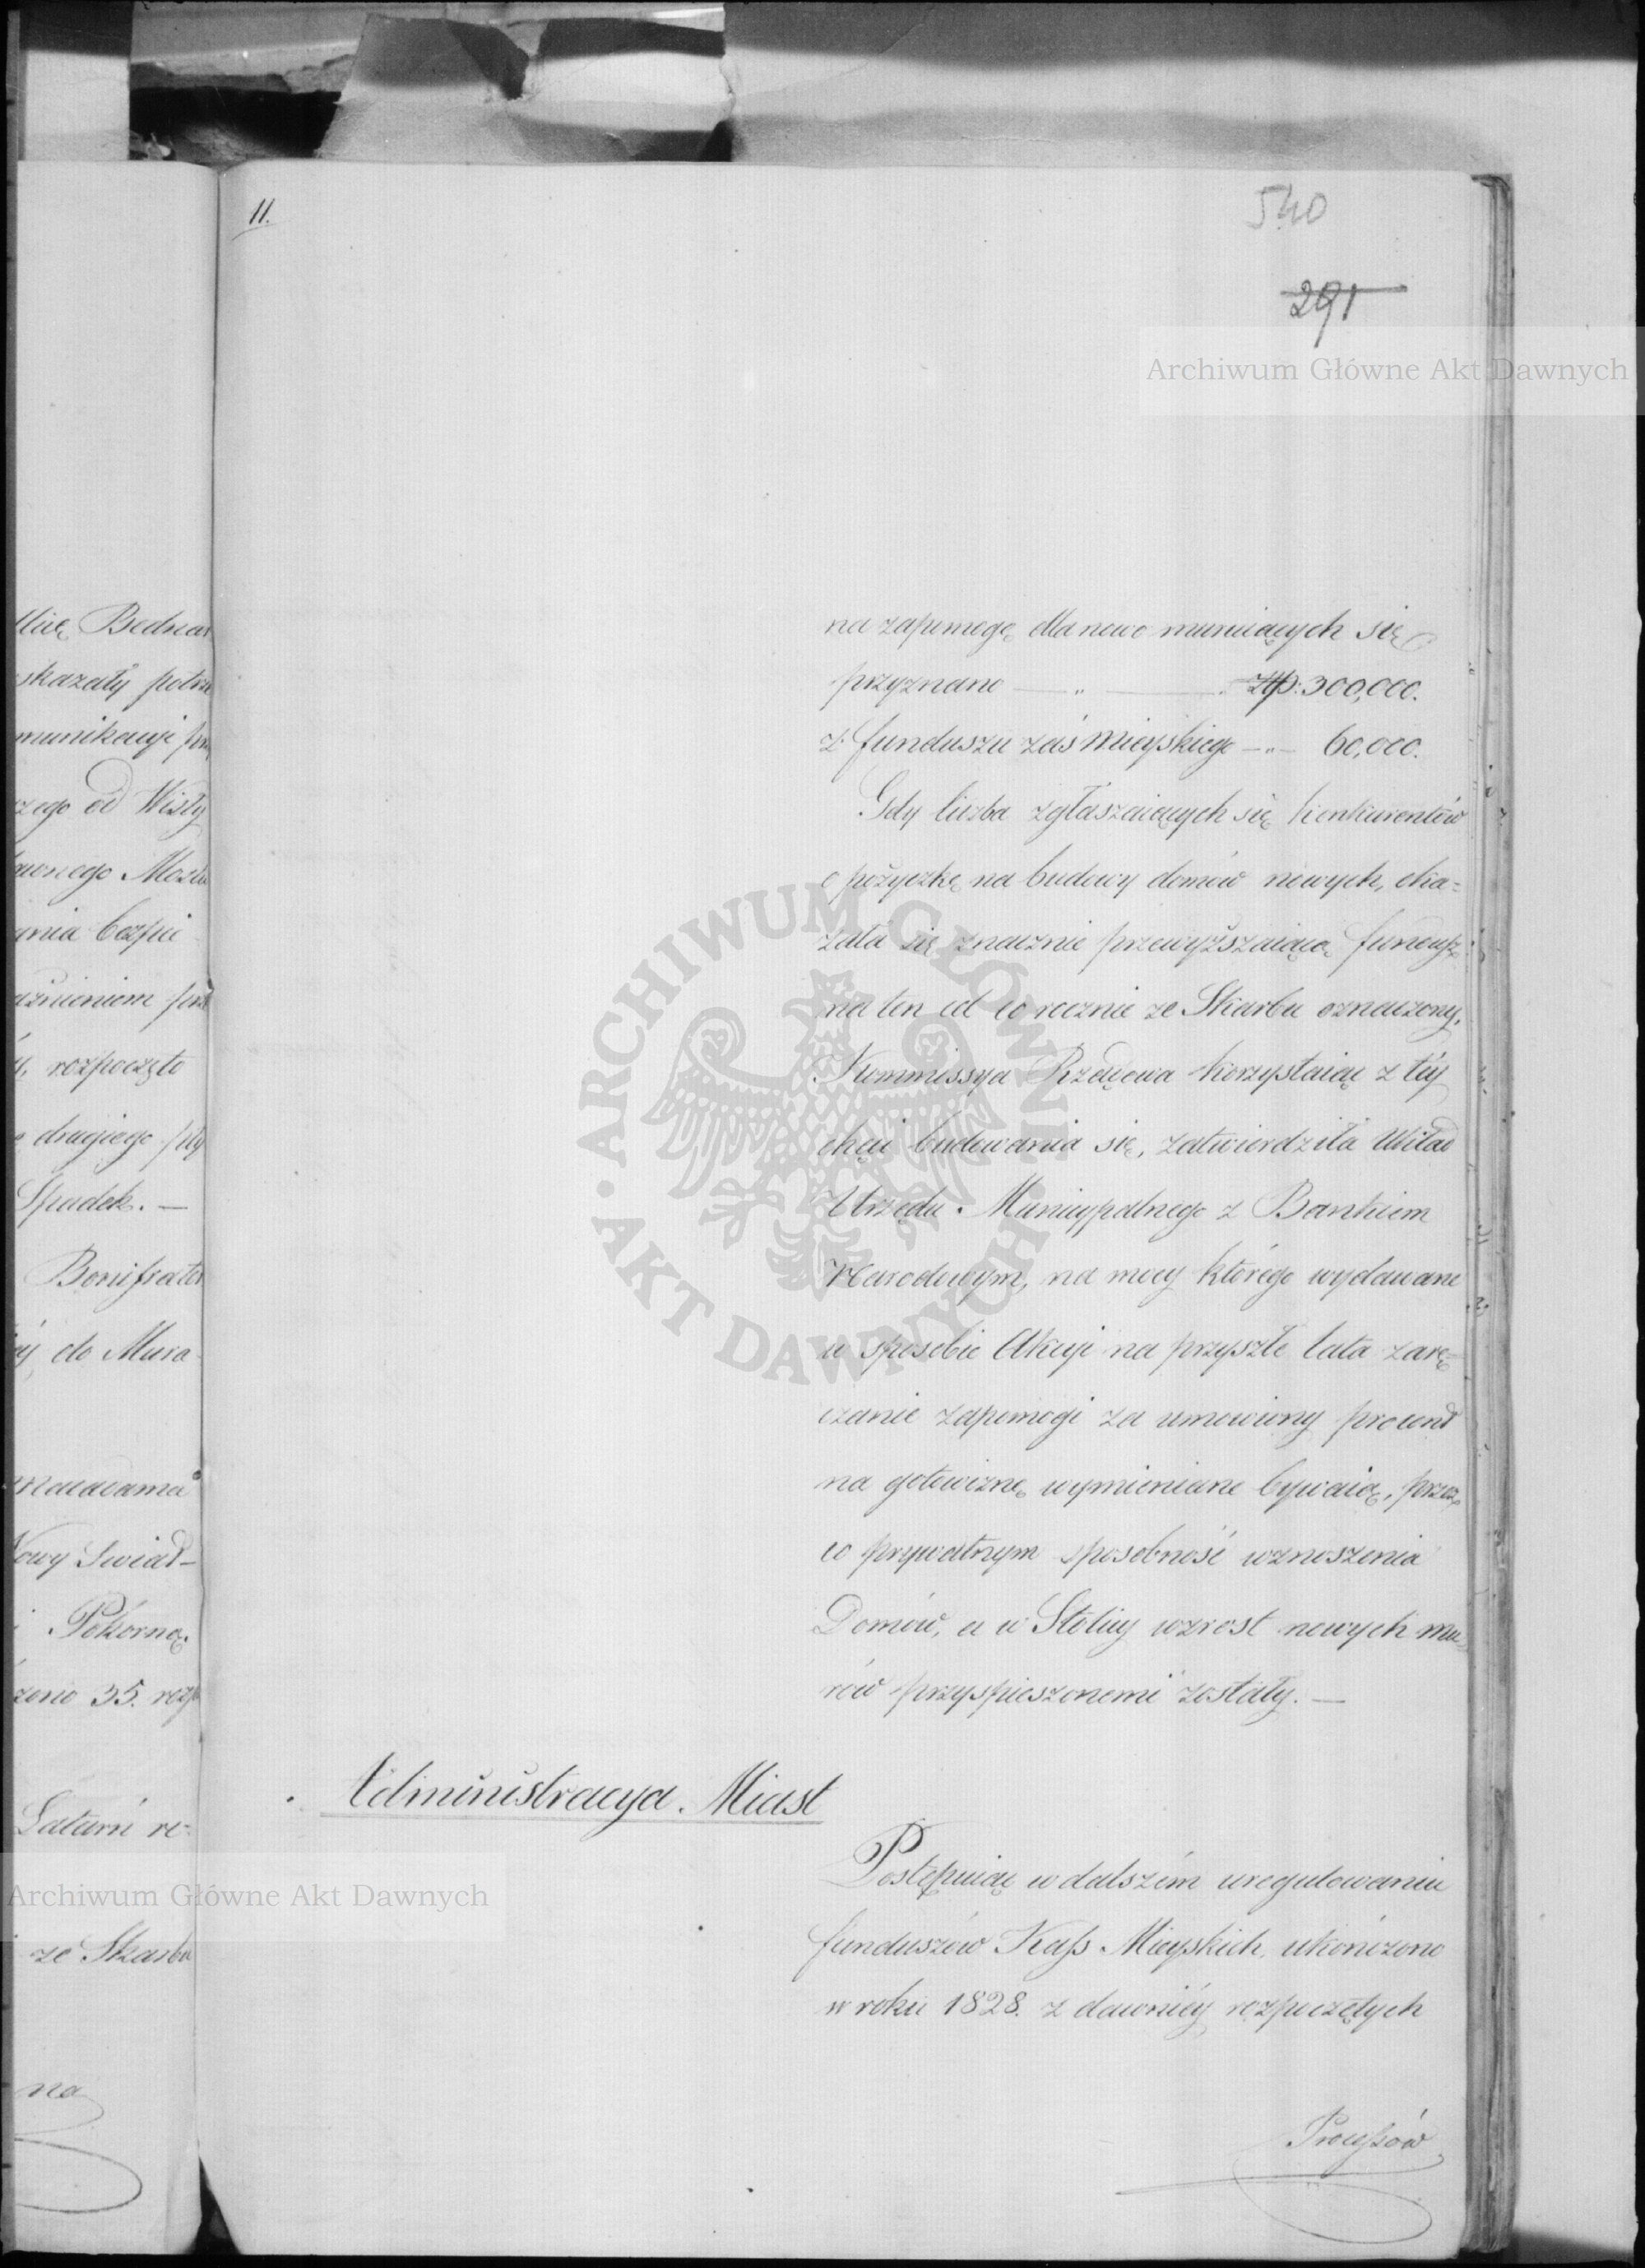 11.
540
291
Archiwum Główne Akt Dawnych
na zapomogę dla nowo muruiących się
przyznano — „ — Złp: 300,000.
z funduszu zaś Mieyskiego — „ — 60,000.
Gdy liczba zgłaszaiących się konkurentów
o pożyczkę na budowy domów nowych, oka=
zała się znacznie przewyższaiącą fundusz
na ten cel co rocznie ze Skarbu oznaczony,
Kommissya Rządowa korzystaiąc z téy
chęci budowania się, zatwierdziła Układ
Urzędu Municypalnego z Bankiem
Narodowym, na mocy którego wydawane
w sposobie Akcyi na przyszłe lata zarę=
czanie zapomogi za umowiony procent
na gotowiznę wymieniane bywaią, przez
co prywatnym sposobność wznoszenia
Domów, a w Stolicy wzrost nowych mu=
rów przyspieszonemi zostały. —
Administracya Miast
Postępuiąc w dalszém uregulowaniu
funduszów Kass Mieyskich, ukończono
w roku 1828. z dawniéy rozpoczętych
Processów
ARCHIWUM GŁÓWNE · AKT DAWNYCH ·
llicę Bednar
skazały potrze
munikacyi
zego od Wisły
wnego Mostu
ania bezpie
y, rozpoczęto
drugiego
Spadek. —
Bonifrater
éy do Mura
Macadama
Nowy Swiat —
i Pokorną.
zono 35. rozp
Latarń re=
Archiwum Główne Akt Dawnych
ze Skarbu
na